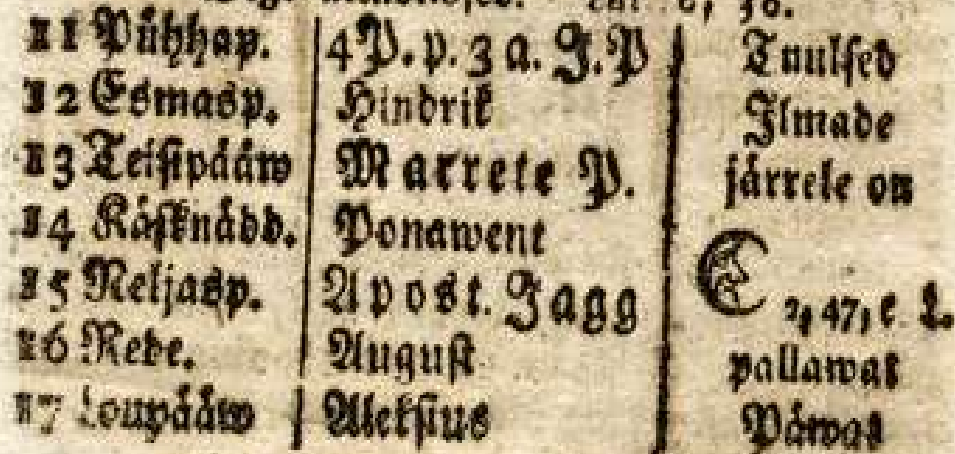 11 Pühhap. 4 P. p. 3 a. J. P Tuulsed
12 Esmasp. Hindrik Ilmade
13 Teisipääw Marrete P. järrele on
14 Käsknädd. Ponawent
15 Neljasp. Apost. Jagg 2, 47, e. L.
16 Rede. August pallawat
17 Loupääw Aleksius Päwat